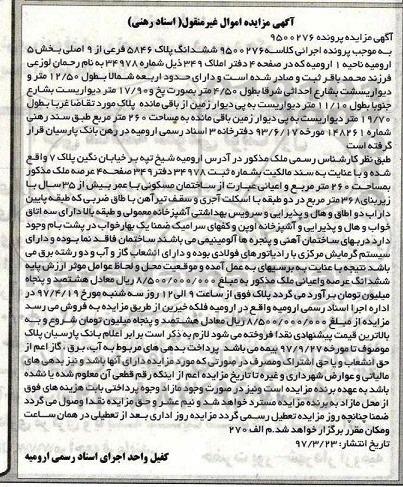 آگهی مزایده اموال غیرمنقول( اسناد رهنی)
آگهی مزایده پرونده ۹۵۰۰۲۷۶
به موجب پرونده اجرائی کلاسه ۹۵۰۰۲۷۶ ششدانگ پلاک ۵۸۴۶ فرعی از ۹ اصلی بخش ۵
ارومیه ناحیه ۱ ارومیه که در صفحه ۴ دفتر املاک ۳۴۹ ذیل شماره ۳۴۹۷۸ به نام رحمان لوزعی
فرزند محمد باقر ثبت و صادر شده است و دارای حدود اربعه شمالا بطول ۱۲/۵۰ متر و
دیواریست بشارع احداثی شرقا بطول ۴/۵۰ متر بصورت پخ و ۱۷/۹۰ متر دیواریست بشارع
جنوبا بطول ۱۱/۱۰ متر دیواریست به پی دیوار زمین از باقی مانده پلاک مورد تقاضا غربا بطول
۱۹/۷۰ متر دیواریست به پی دیوار زمین باقی مانده به مساحت ۲۶۰ متر مربع طبق سند رهنی
شماره ۱۴۸۲۶۱ مورخه ۹۳/۶/۱۷ دفترخانه ۳ اسناد رسمی ارومیه در رهن بانک پارسیان قرار
گرفته است
طبق نظر کارشناس رسمی ملک مذکور در آدرس ارومیه شیخ تپه بر خیابان نگین پلاک ۷ واقع
شده و با عنایت به سند مالکیت بشماره ثبت ۳۴۹۷۸ دفتر ۳۴۹ صفحه ۴ عرصه ملک مذکور
بمساحت ۲۶۰ متر مربع و اعیانی عبارت از ساختمان مسکونی با عمر بیش از ۳۵ سال با
زیربنای ۳۶۸ متر مربع در دو طبقه با اسکلت آجری و سقف تیرآهن با طاق ضربی که طبقه پایین
دارای دو اطاق و هال و پذیرایی و سرویس بهداشتی آشپزخانه معمولی و طبقه بالا دارای سه اتاق
خواب و هال و پذیرایی و آشپزخانه اوپن و کفهای سرامیک ضمنا یک بهارخواب در پشت بام وجود
دارد دربهای ساختمان آهنی و پنجره ها آلومینیمی می باشند ساختمان فاقد نما بوده و دارای
سیستم گرمایش مرکزی با رادیاتورهای فولادی بوده و دارای انشعاب گاز و آب و دو رشته برق می
باشد نتیجه با عنایت به برسیهای به عمل آمده و موقعیت محل و لحاظ عوامل موثر ارزش پایه
ششدانگ عرصه واعیانی ملک مذکور به مبلغ ۸/۵۰۰/۰۰۰/۰۰۰ ریال معادل هشتصد و پنجاه
میلیون تومان برآورد می گردد پلاک فوق از ساعت ۹ الی ۱۲ روز سه شنبه مورخ ۹۷/۴/۱۹ در
اداره اجرا اسناد رسمی ارومیه واقع در ارومیه فلکه خیرین از طریق مزایده به فروش می رسد
مزایده از مبلغ ۸/۵۰۰/۰۰۰/۰۰۰ ریال معادل هشتصد و پنجاه میلیون تومان شروع و به
بالاترین قیمت پیشنهادی نقدا فروخته می شود لازم به ذکر است برابر اعلام بانک پارسیان پلاک
موصوف تا مورخه ۹۷/۹/۲۷ بیمه می باشد پرداخت بدهی های مربوط به آب، برق، گاز اعم از
حق انشعاب و یا حق اشتراک و مصرف در صورتی که مورد مزایده دارای آنها باشد و نیز بدهی های
مالیاتی و عوارض شهرداری و غیره تا تاریخ مزایده اعم از اینکه رقم قطعی آن معلوم شده یا نشده
باشد به عهده برنده مزایده است ونیز در صورت وجود مازاد وجوه پرداختی بابت هزینه های فوق
از محل مازاد به برنده مزایده مسترد خواهد شد و نیم عشر و حق مزایده نقدا وصول می گردد
ضمنا چنانچه روز مزایده تعطیل رسمی گردد مزایده روز اداری بعد از تعطیلی در همان ساعت
ومکان مقرر برگزار خواهد شد.م الف ۲۷۰
تاریخ انتشار: ۹۷/۳/۲۳
کفیل واحد اجرای اسناد رسمی ارومیه